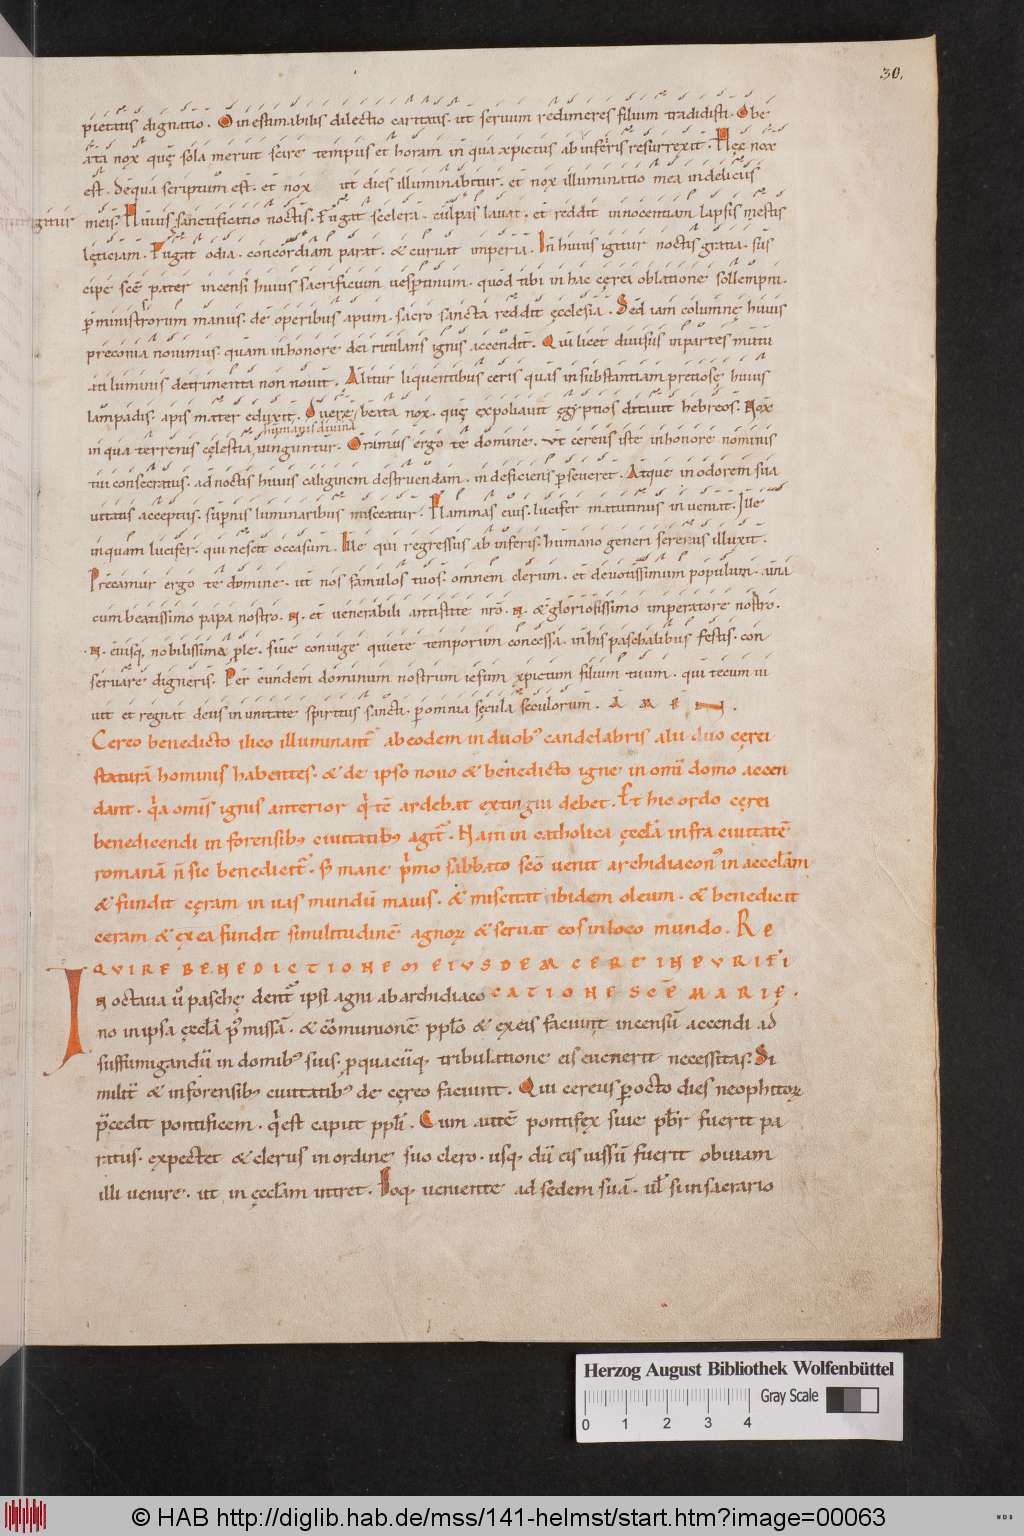 30.
pietatis dignatio. O inestimabilis dilectio caritatis. ut servum redimeres filium tradidisti. O be
ata nox quę sola meruit scire tempus et horam in qua xpictus ab inferis resurrexit. Hęc nox
est. de qua scriptum est. et nox ut dies illuminabitur. et nox illuminatio mea in deliciis
igitur meis. Huius sanctificatio noctis. fugat scelera. culpas lavat. et reddit innocentiam lapsis mestis
lęticiam. Fugat odia. concordiam parat. & curvat imperia. In huius igitur noctis gratia. sus
cipe scē pater incensi huius sacrificium vespertinum. quod tibi in hac cęrei oblatione sollempni.
p ministrorum manus. de operibus apum. sacro sancta reddit ęcclesia. Sed iam columnę huius
preconia novimus. quam in honore dei rutilans ignis accendit. Qui licet divisus in partes mutu
ati luminis detrimenta non novit. Alitur liquentibus ceris quas in substantiam preciosę huius
lampadis. apis mater eduxit. O vere beata nox. quę expoliavit ęgyptios ditavit hebreos. Nox
humanis divina
in qua terrenis cęlestia iunguntur. Oramus ergo te domine. ut cereus iste in honore nominis
tui consecratus. ad noctis huius caliginem destruendam. indeficiens pseveret. Atque in odorem sua
vitatis acceptus. supnis luminaribus misceatur. Flammas eius. lucifer matutinus inveniat. Ille
inquam lucifer. qui nescit occasum. Ille qui regressus ab inferis. humano generi serenus illuxit.
Precamur ergo te domine. ut nos famulos tuos. omnem clerum. et devotissimum populum. una
cum beatissimo papa nostro. N. et venerabili antistite nrō. N. & gloriosissimo imperatore nostro.
.N. eiusq; nobilissima ple. sive coniuge quiete temporum concessa. in his paschalibus festis. con
servare digneris. Per eundem dominum nostrum iesum xpictum filium tuum. qui tecum vi
vit et regnat deus in unitate spiritus sancti. p omnia sęcula seculorum. A M E N.
Cereo benedicto ilico illuminant̄ ab eodem in duob; candelabris alii duo cęrei
staturā hominis habentes. & de ipso novo & benedicto igne in omī domo accen
dant. q̇a omīs ignis anterior q̇ tē ardebat extingui debet. Et hic ordo cęrei
benedicendi in forensib; civitatib; agit̄. Nam in catholica ęccla infra civitatē
romanā n̄ sic benedicit̄. S; mane ṗmo sabbato scō venit archidiacon; in aecclam
& fundit cęram in vas mundū maius. & miscitat ibidem oleum. & benedicit
ceram & ex ea fundit similitudinē agnoꝝ & servat eos in loco mundo. R e
Q U I R E B E N E D I C T I O N E M E I U S D E M C E R E I N P U R I F I
C A T I O N E S C Ē M A R I Ę.
In octava ů paschę dent̄ ipsi agni ab archidiaco
no in ipsa ęccla p; missā. & cōmunionē pplo & ex eis faciunt incensū accendi ad
suffumigandū in domib; suis. p quacūq; tribulatione eis evenerit necessitas. Si
milit̄ & in forensib; civitatib; de cęreo faciunt. Qui cereus p octo dies neophitoꝝ
p̄cedit pontificem. q̇ est caput ppli. Cum autē pontifex sive pbr fuerit pa
ratus. expectet & clerus in ordine suo clero. usq; dū eis iussū fuerit obviam
illi venire. ut in ęcclam intret. Ioq; veniente ad sedem suā. ul si in sacrario
Herzog August Bibliothek Wolfenbüttel
0 1 2 3 4 Gray Scale
© HAB http://diglib.hab.de/mss/141-helmst/start.htm?image=00063